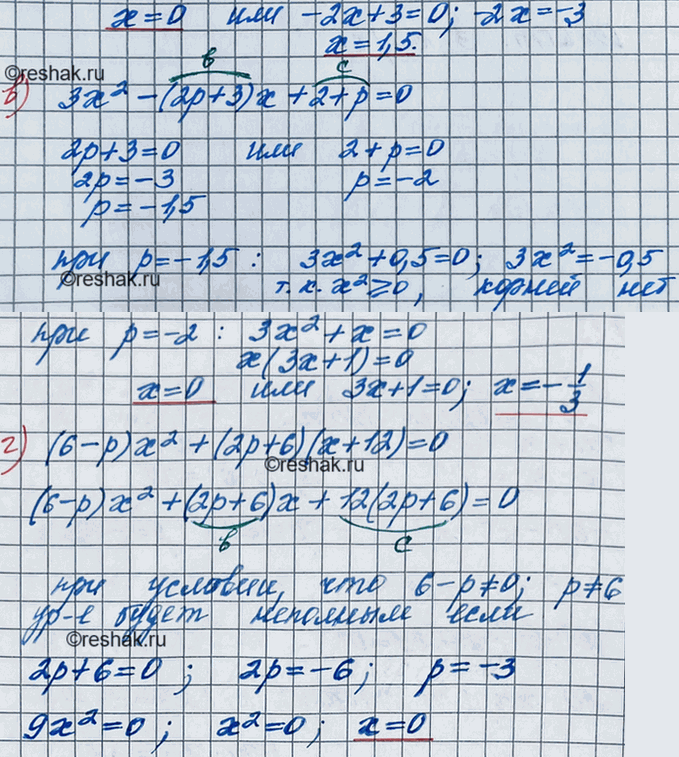 x=0 или -2x+3=0; -2x=-3
x=1,5.
©reshak.ru
в c
в) 3x² -(2p+3)x+2+p=0
2p+3=0 или 2+p=0
2p=-3 p=-2
p=-1,5
при p=-1,5: 3x²+0,5=0; 3x²=-0,5
©reshak.ru
т.к. x²≥0, корней нет
при p=-2: 3x²+x=0
x(3x+1)=0
x=0 или 3x+1=0; x=-1/3
г) (6-p)x²+(2p+6)(x+12)=0
©reshak.ru
(6-p)x²+(2p+6)x+12(2p+6)=0
в c
при условии, что 6-p≠0; p≠6
ур-е будет неполным если
©reshak.ru
2p+6=0; 2p=-6; p=-3
9x²=0; x²=0; x=0